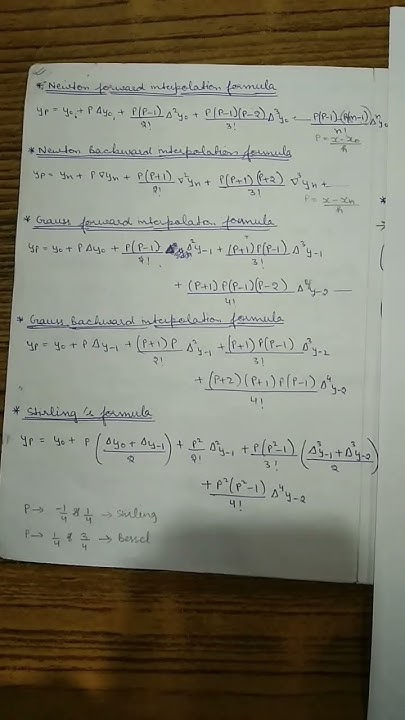 * Newton forward interpolation formula
yp = y₀ + P Δy₀ + P(P-1)/2! Δ²y₀ + P(P-1)(P-2)/3! Δ³y₀ + P(P-1)--(P(n-1))/n! Δⁿy₀
P = x-x₀/h
* Newton Backward interpolation formula
yp = yn + P ∇yn + P(P+1)/2! ∇²yn + P(P+1)(P+2)/3! ∇³yn + --
P = x-xn/h
* Gauss forward interpolation formula
yp = y₀ + P Δy₀ + P(P-1)/2! Δ²y-1 + (P+1)P(P-1)/3! Δ³y-1
+ (P+1)P(P-1)(P-2)/4! Δ⁴y-2 ---
* Gauss Backward interpolation formula
yp = y₀ + P Δy-1 + (P+1)P/2! Δ²y-1 + (P+1)P(P-1)/3! Δ³y-2
+ (P+2)(P+1)P(P-1)/4! Δ⁴y-2
* Stirling's formula
yp = y₀ + P (Δy₀ + Δy-1/2) + P²/2! Δ²y-1 + P(P²-1)/3! (Δ³y-1 + Δ³y-2/2)
+ P²(P²-1)/4! Δ⁴y-2
P → -1/4 & 1/4 → Stirling
P → 1/4 & 3/4 → Bessel